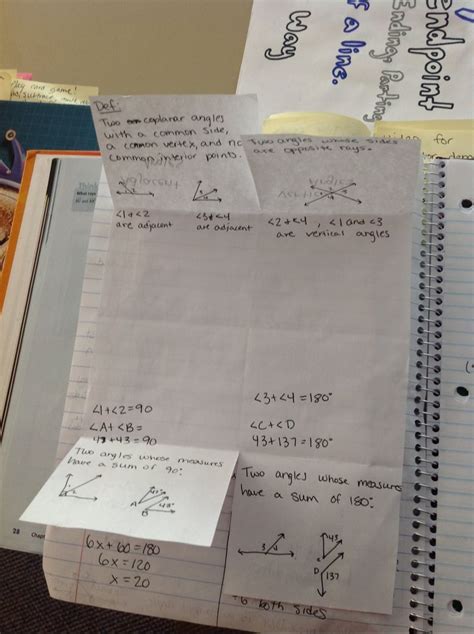 Endpoint
Ending, Parting
of a line.
Way
Def:
Two coplanar angles
with a common side,
a common vertex, and no
common interior points.
Two angles whose sides
are opposite rays.
<1+<2
are adjacent
<3+<4
are adjacent
<2+<4, <1 and <3
are vertical angles
<1+<2=90
<A+<B=
47+43=90
<3+<4=180°
<C+<D
43+137=180°
Two angles whose measures
have a sum of 90:
Two angles whose measures
have a sum of 180:
A
B
43°
3 4
43
C
D
137
28
6x+60=180
6x=120
x=20
both sides